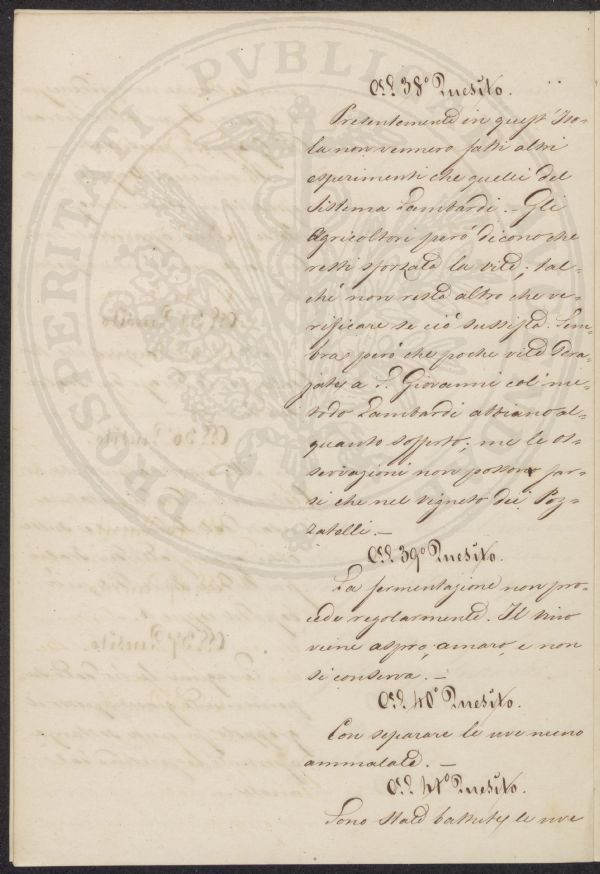 PROSPERITATI PVBLICAE
Al 38º Quesito.
Presentemente in quest' Iso-
la non vennero fatti altri
esperimenti che quelli del
sistema Lambardi. – Gli
Agricoltori però dicono che
resti sforzata la vite; tal-
chè non resta altro che ve-
rificare se ciò sussista. Sem-
bra però che poche vite
a S. Giovanni col' me-
todo Lambardi abbiano al-
quanto sofferto; me le os-
servazioni non possono far-
si che nel vigneto dei Poz-
zatelli. –
Al 39º Quesito.
La fermentazione non pro-
cede regolarmente. Il vino
viene aspro, amaro, e non
si conserva. –
Al 40º Quesito.
Con separare le uve meno
ammalate. –
Al 41º Quesito.
Sono state battute le uve